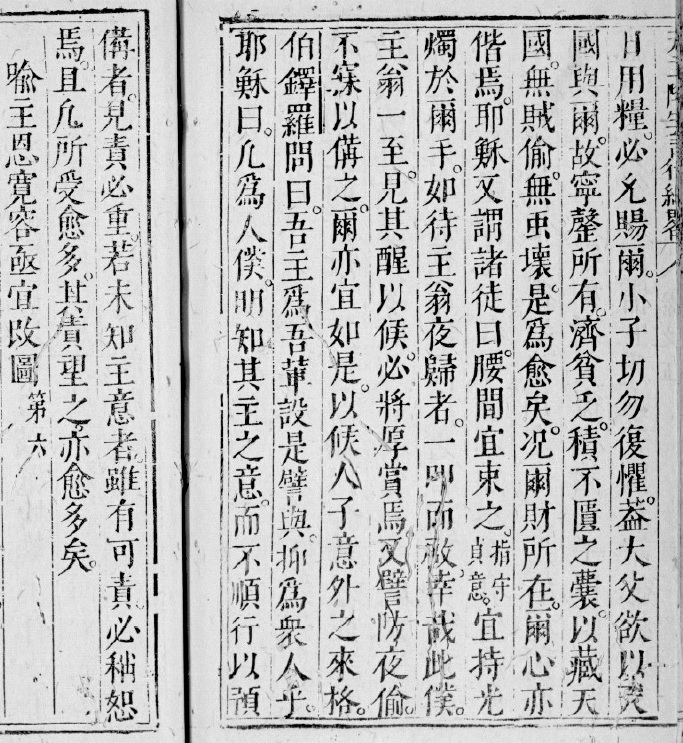 日用糧。必允賜爾。小子切勿復懼。蓋大父欲以天
國與爾。故寧罄所有。濟貧乏。積不匱之囊。以藏天
國。無賊偷。無虫壞。是爲愈矣。况爾財所在。爾心亦
偕焉。耶穌又謂諸徒曰。腰間宜束之。指守貞意。宜持光
燭於爾手。如待主翁夜歸者。一叩而啟。幸哉此僕。
主翁一至。見其醒以候。必將厚賞焉。又譬防夜偷。
不寐以備之。爾亦宜如是。以候人子意外之來格。
伯鐸羅問曰。吾主爲吾輩設是譬與。抑爲衆人乎。
耶穌曰。凡爲人僕。明知其主之意。而不順行以預
備者。見責必重。若未知主意者。雖有可責。必稍恕
焉。且凡所受愈多。其責望之亦愈多矣。
喻主恩寬容亟宜改圖 第六